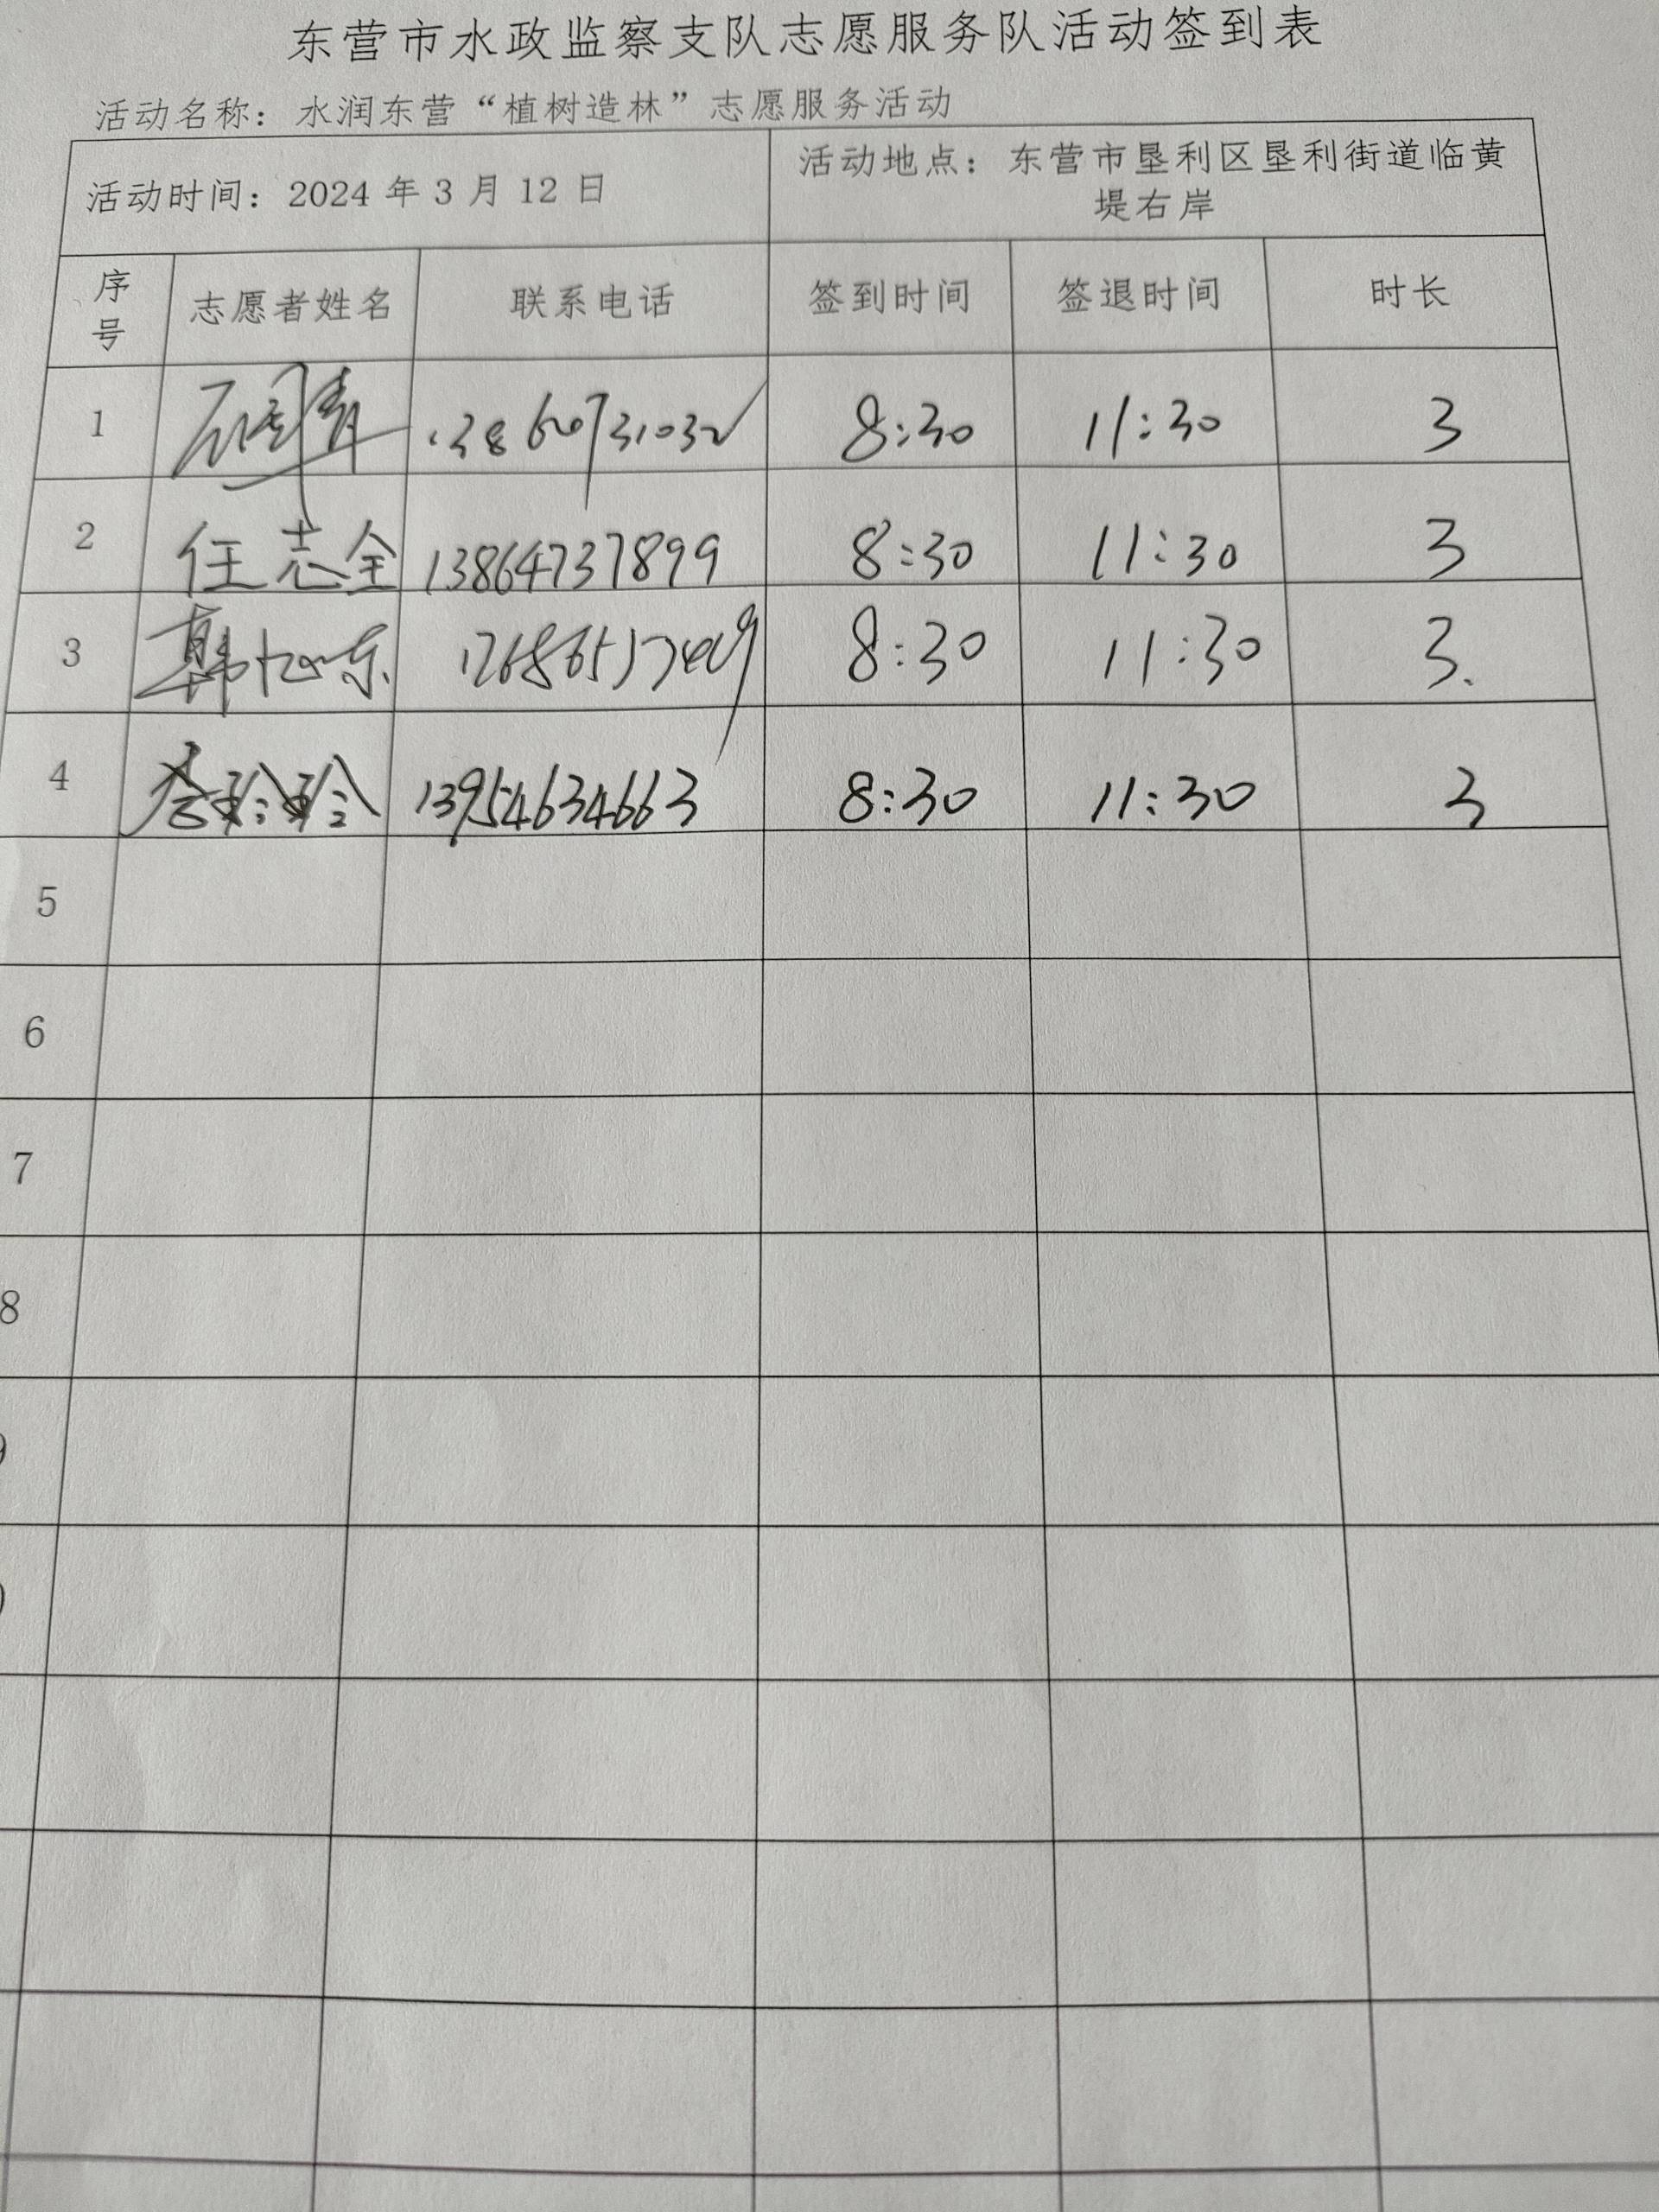 东营市水政监察支队志愿服务队活动签到表
活动名称：水润东营“植树造林”志愿服务活动
活动时间：2024 年 3 月 12 日
活动地点：东营市垦利区垦利街道临黄
堤右岸
序号 志愿者姓名 联系电话 签到时间 签退时间 时长
1 8:30 11:30 3
2 任志全 13864737899 8:30 11:30 3
3 8:30 11:30 3.
4 13954634663 8:30 11:30 3
5
6
7
8